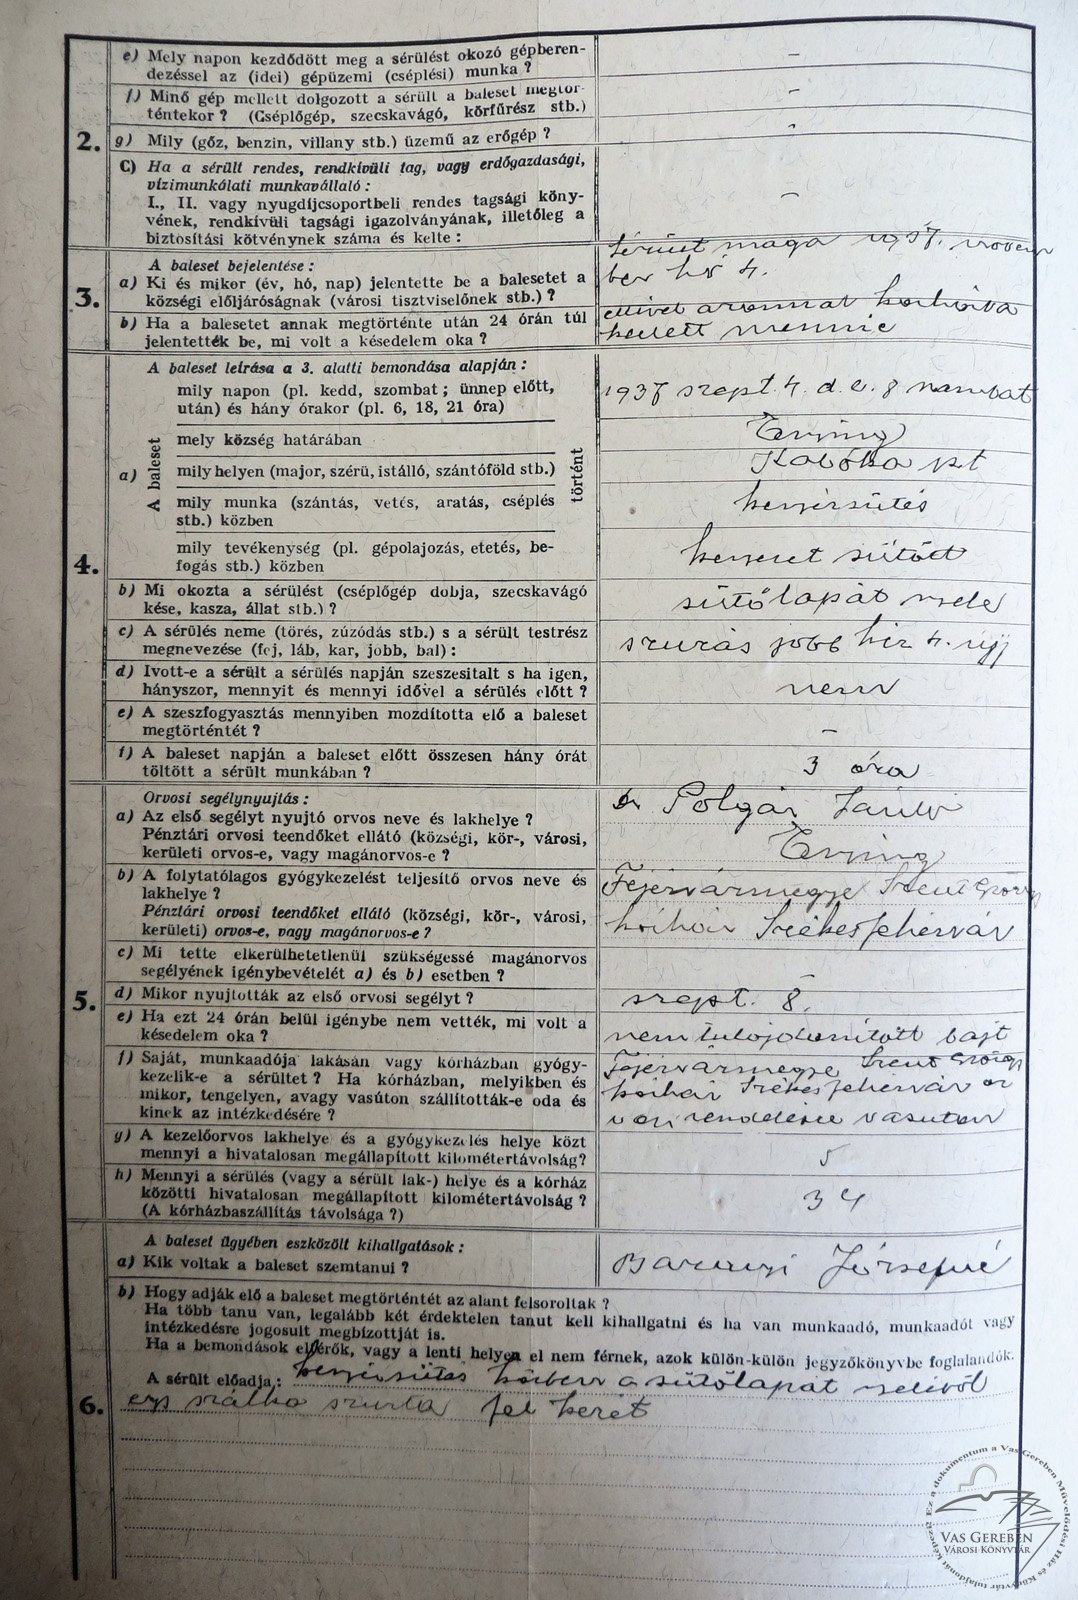 e) Mely napon kezdődött meg a sérülést okozó gépberen-
dezéssel az (idei) gépüzemi (cséplési) munka ?
–
f) Minő gép mellett dolgozott a sérült a baleset megtör-
téntekor ? (Cséplőgép, szecskavágó, körfűrész stb.)
–
2.
g) Mily (gőz, benzin, villany stb.) üzemű az erőgép ?
–
C) Ha a sérült rendes, rendkívüli tag, vagy erdőgazdasági,
vízimunkálati munkavállaló :
I., II. vagy nyugdíjcsoportbeli rendes tagsági köny-
vének, rendkívüli tagsági igazolványának, illetőleg a
biztosítási kötvénynek száma és kelte :
–
3.
A baleset bejelentése :
a) Ki és mikor (év, hó, nap) jelentette be a balesetet a
községi előljáróságnak (városi tisztviselőnek stb.) ?
sérült maga 1937. novem
ber hó 4.
b) Ha a balesetet annak megtörténte után 24 órán túl
jelentették be, mi volt a késedelem oka ?
mivel azonnal kórházba
kellett mennie
4.
A baleset leírása a 3. alatti bemondása alapján :
a) A baleset
mily napon (pl. kedd, szombat ; ünnep előtt,
után) és hány órakor (pl. 6, 18, 21 óra)
1937 szept. 4. d. e. 8 szombat
mely község határában
Enying
mily helyen (major, szérű, istálló, szántóföld stb.)
pt
mily munka (szántás, vetés, aratás, cséplés
stb.) közben
kenyérsütés
mily tevékenység (pl. gépolajozás, etetés, be-
fogás stb.) közben
kenyeret sütött
történt
b) Mi okozta a sérülést (cséplőgép dobja, szecskavágó
kése, kasza, állat stb.) ?
sütőlapát nyele
c) A sérülés neme (törés, zúzódás stb.) s a sérült testrész
megnevezése (fej, láb, kar, jobb, bal) :
szurás jobb kéz 4. ujj
d) Ivott-e a sérült a sérülés napján szeszesitalt s ha igen,
hányszor, mennyit és mennyi idővel a sérülés előtt ?
nem
e) A szeszfogyasztás mennyiben mozdította elő a baleset
megtörténtét ?
–
f) A baleset napján a baleset előtt összesen hány órát
töltött a sérült munkában ?
3 óra
5.
Orvosi segélynyujtás :
a) Az első segélyt nyujtó orvos neve és lakhelye ?
Pénztári orvosi teendőket ellátó (községi, kör-, városi,
kerületi orvos-e, vagy magánorvos-e ?
Dr Polgár
Enying
b) A folytatólagos gyógykezelést teljesítő orvos neve és
lakhelye ?
Pénztári orvosi teendőket ellátó (községi, kör-, városi,
kerületi) orvos-e, vagy magánorvos-e ?
Fejérvármegye Szent György
kórház Székesfehérvár
c) Mi tette elkerülhetetlenül szükségessé magánorvos
segélyének igénybevételét a) és b) esetben ?
–
d) Mikor nyujtották az első orvosi segélyt ?
szept. 8.
e) Ha ezt 24 órán belül igénybe nem vették, mi volt a
késedelem oka ?
nem tulajdonított bajt
f) Saját, munkaadója lakásán vagy kórházban gyógy-
kezelik-e a sérültet ? Ha kórházban, melyikben és
mikor, tengelyen, avagy vasúton szállították-e oda és
kinek az intézkedésére ?
Fejérvármegye Szent György
kórház Székesfehérvár or
vosi rendelésre vasuton
g) A kezelőorvos lakhelye és a gyógykezelés helye közt
mennyi a hivatalosan megállapított kilométertávolság?
5
h) Mennyi a sérülés (vagy a sérült lak-) helye és a kórház
közötti hivatalosan megállapított kilométertávolság ?
(A kórházbaszállítás távolsága ?)
34
6.
A baleset ügyében eszközölt kihallgatások :
a) Kik voltak a baleset szemtanui ?
Baranyi Józsefné
b) Hogy adják elő a baleset megtörténtét az alant felsoroltak ?
Ha több tanu van, legalább két érdektelen tanut kell kihallgatni és ha van munkaadó, munkaadót vagy
intézkedésre jogosult megbizottját is.
Ha a bemondások eltérők, vagy a lenti helyen el nem férnek, azok külön-külön jegyzőkönyvbe foglalandók.
A sérült előadja : kenyérsütés közben a sütőlapát nyeléből
egy szálka szurta fel kezét
Ez a dokumentum a Vas Gereben Művelődési Ház és Könyvtár tulajdonát képezi!
VAS GEREBEN
VÁROSI KÖNYVTÁR